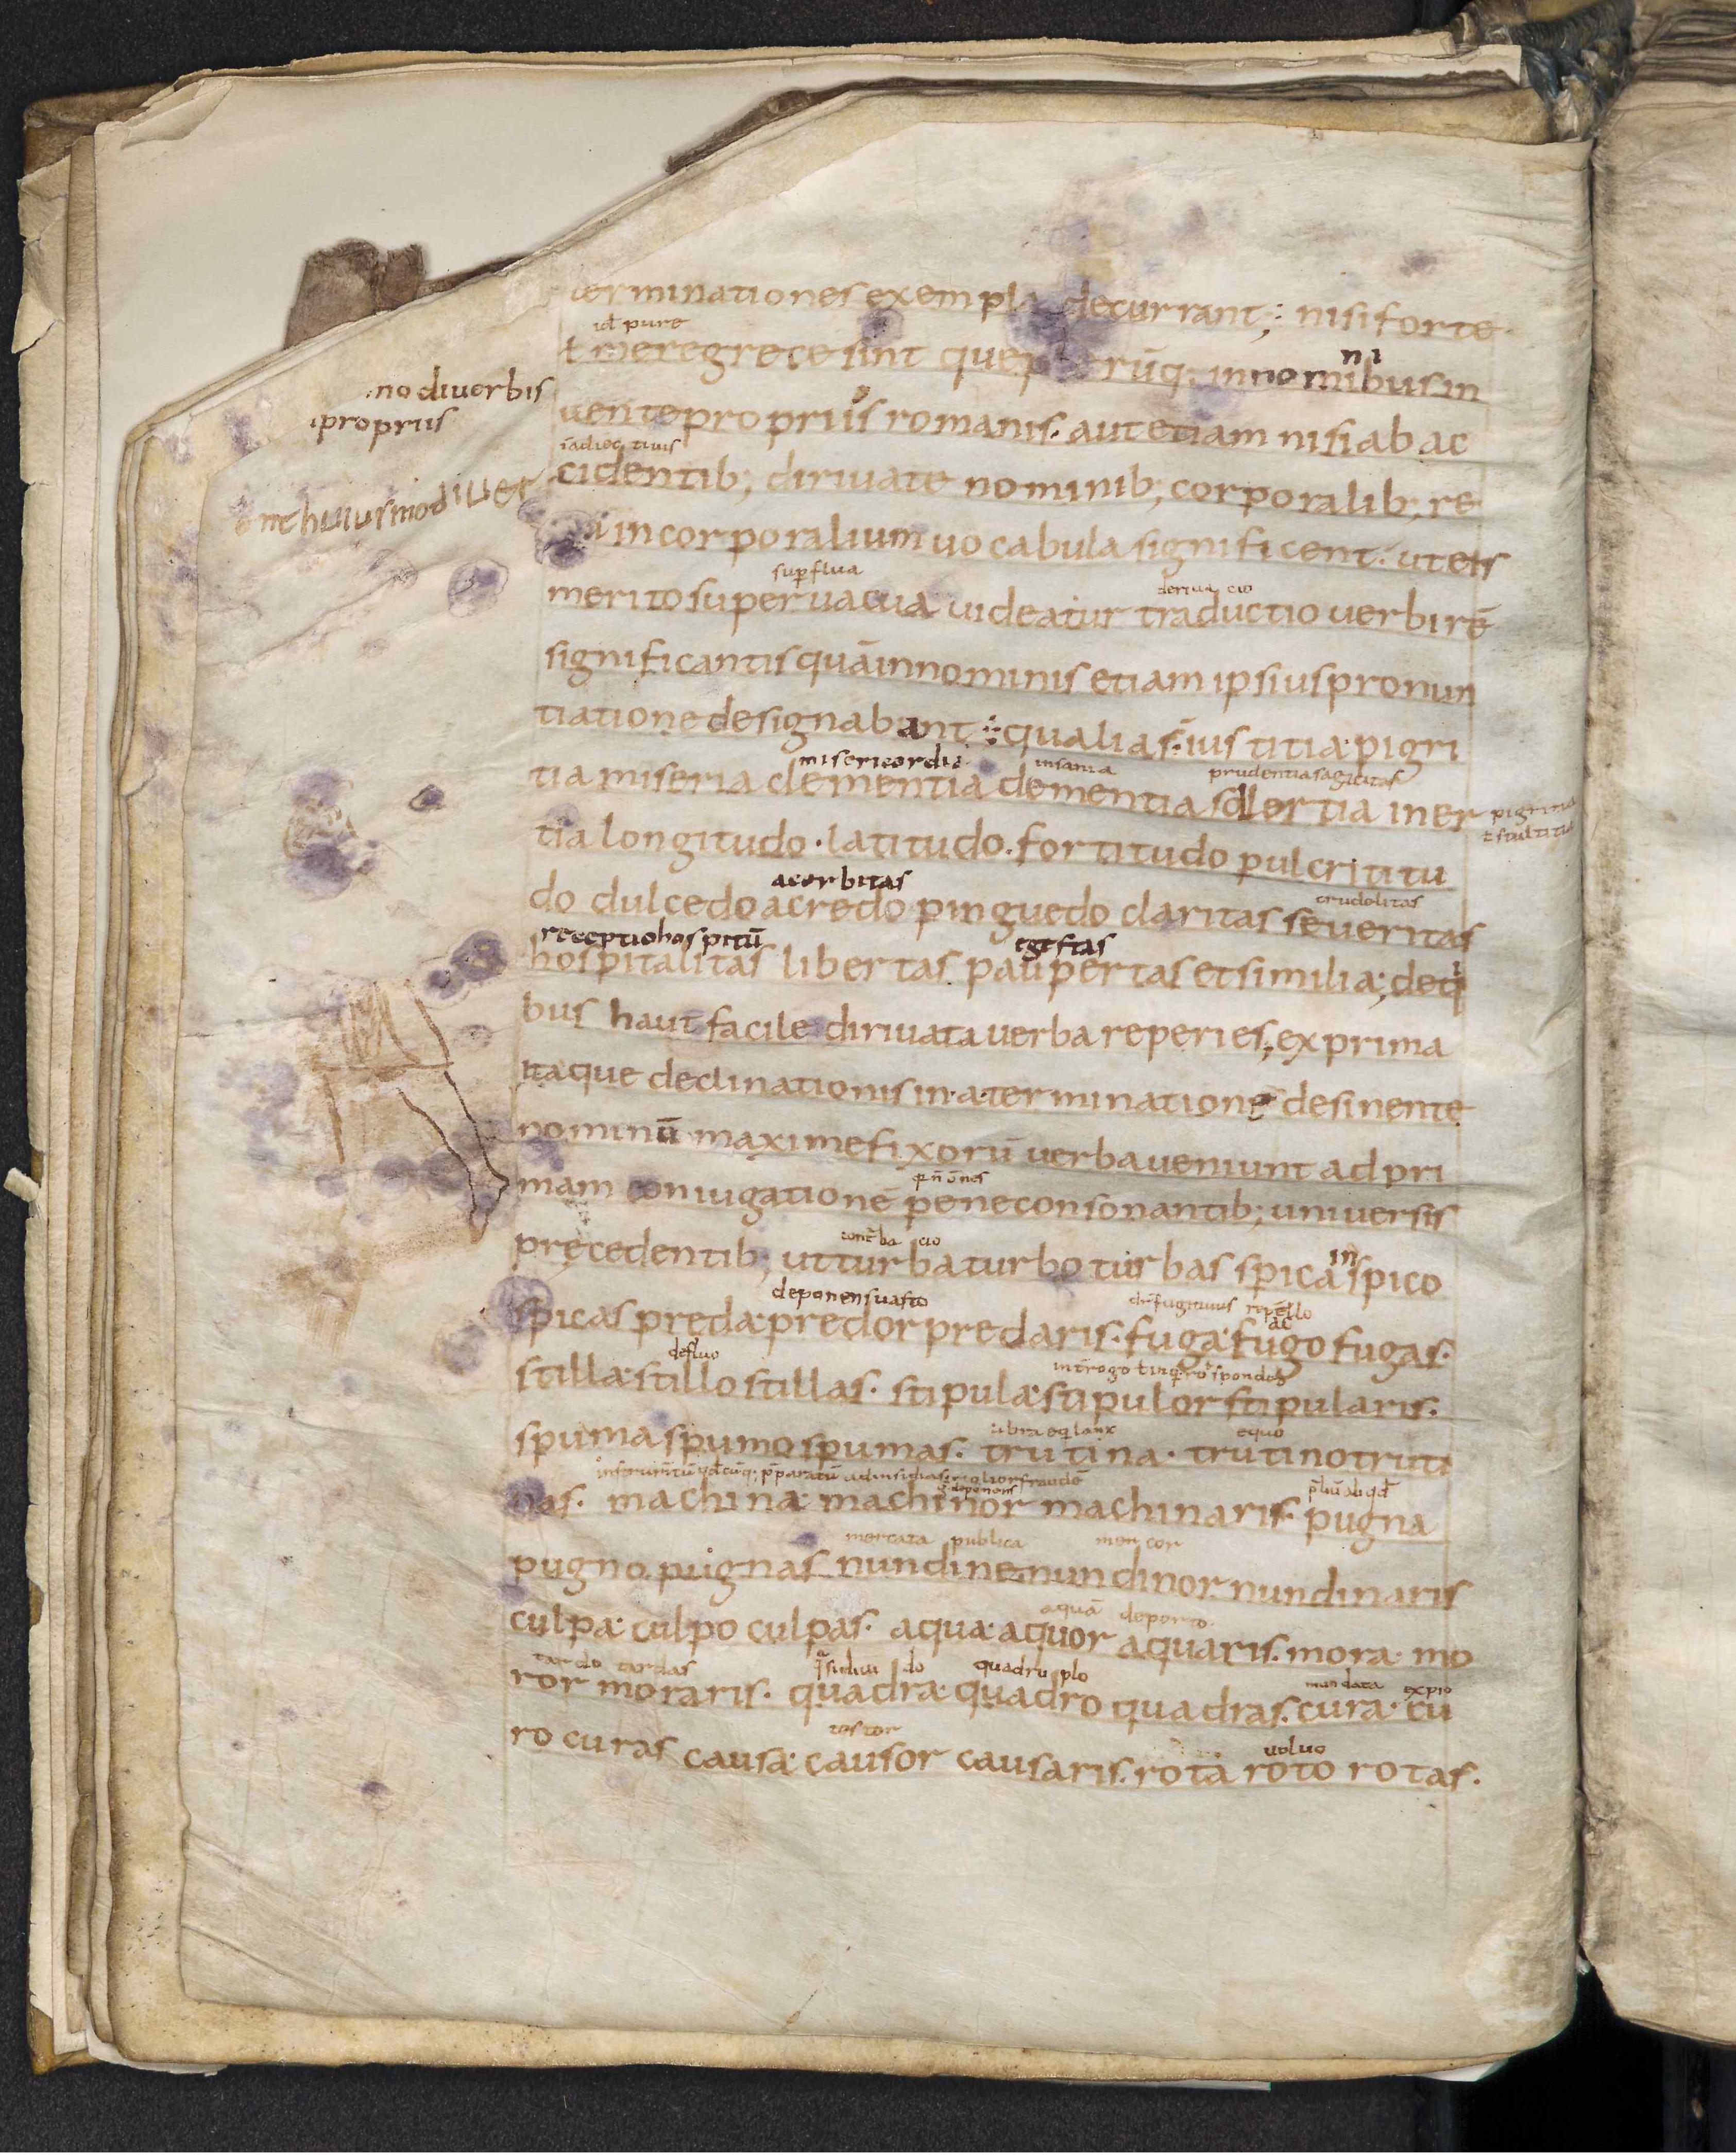 terminationes exempla decurrant; nisi forte
id pure
ł mere grece sint que rūq; in nominibus in
ni
no diuerbis
propriis
uente propriis romanis. aut etiam nisi ab ac
iadiectiuis
cidentib; diriuate nominib; corporalib; re
huiusmodi uer
incorporalium uocabula significent: ut eis
supflua deriua cio
merito superuacua uideatur traductio uerbi rē
significantis quā in nominis etiam ipsius pronun
tiatione designabant; qualia s̄. iustitia pigri
misericordia insania prudentia sagacitas
tia miseria clementia dementia sollertia iner
pigritia
ł stultitia
tia longitudo. latitudo. fortitudo pulcrititu
acerbitas crudelitas
do dulcedo acredo pinguedo claritas seueritas
receptio hospitū egestas
hospitalitas libertas paupertas et similia; deq
bus haut facile diriuata uerba reperies, ex prima
itaque declinationis in .a. terminatione desinente
nominū maxime fixorū uerba ueniunt ad pri
mam coniugationē pene consonantib; uniuersis
precedentib; ut turba turbo turbas spica spico
in
deponens uasto repello
spicas preda predor predaris. fuga fugo fugas.
defluo
stilla stillo stillas. stipula stipulor stipularis.
equo
spuma spumo spumas. trutina. trutino truti
nas. machina machinor machinaris. pugna
mercata publica mercor
pugno pugnas nundine nundinor nundinaris
aquā deporto
culpa culpo culpas. aqua aquor aquaris. mora mo
tardo tardas quadruplo mundata expio
ror moraris. quadra quadro quadras. cura cu
uoluo
ro curas causa causor causaris. rota roto rotas.